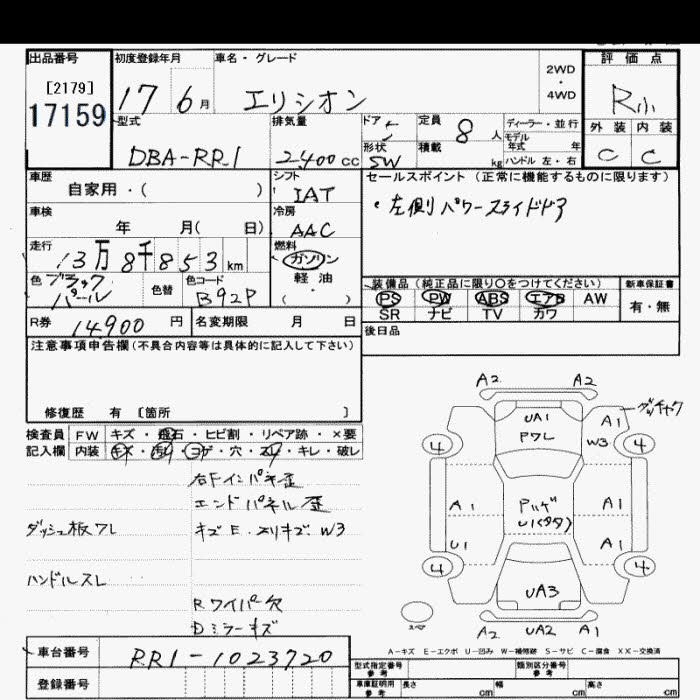 出品番号 初度登録年月 車名・グレード 評価点
[2179]
17159
17 6月 エリシオン 2WD・4WD R小
型式 排気量 ドア 5 定員 8人 ディーラー・並行 外装 内装
モデル年式 年
DBA-RR1 2400cc 形状 SW 積載 kg ハンドル 左・右 C C
車歴 シフト セールスポイント (正常に機能するものに限ります)
自家用・( ) IAT
・左側パワースライドドア
車検 冷房
年 月( 日) AAC
走行 燃料
13万8千853km ガソリン
軽油・( )
色 ブラックパール 色替 色コード B92P
装備品 (純正品に限り○をつけてください) 新車保証書
PS PW ABS エアB AW 有・無
SR ナビ TV カワ
R券 14900円 名変期限 月 日
後日品
注意事項申告欄 (不具合内容等は具体的に記入して下さい)
修復歴 有 〔箇所 〕
検査員 FW キズ・飛石・ヒビ割・リペア跡・×要
記入欄 内装 キズ・汚れ・コゲ・穴・スレ・キレ・破レ
右FインパネE歪
エンドパネル歪
ダッシュ板ワレ
キズE・スリキズ・W3
ハンドルスレ
Rワイパー欠
Dミラーキズ
A2 A2
UA1 A1
PワL W3
4 4
A1 A1
U1 A1
4 4
UA3
スペア
A2 UA2 A1
A-キズ E-エクボ U-凹み W-補修跡 S-サビ C-腐食 XX-交換済
車台番号 RR1-1023720
型式指定番号 参考 類別区分番号 参考
登録番号
車庫証明用 参考 長さ cm 幅 cm 高さ cm